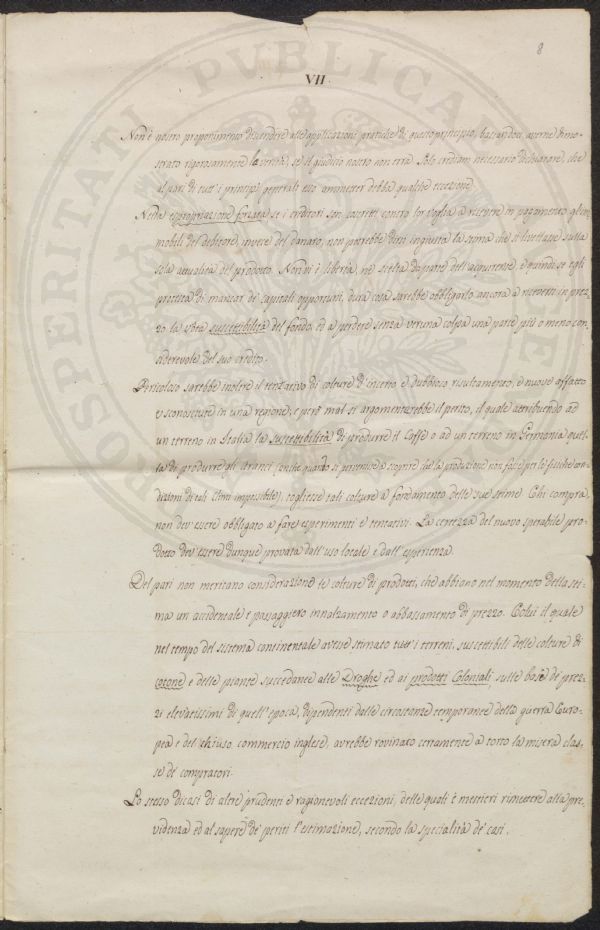 8
VII.
Non è nostro proponimento discendere alle applicazioni pratiche di questo principio, bastandoci averne dimo-
strato rigorosamente la verità, se il giudizio nostro non erra. Solo crediam necessario dichiarare, che
al pari di tutt'i principj generali esso ammetter debba qualche eccezione.
Nella espropriazione forzata se i creditori son costretti contro lor voglia a ricevere in pagamento gl'im-
mobili del debitore, invece del danaro, non potrebbe dirsi ingiusta la stima che si livellasse sulla
sola attualità del prodotto. Non vi è libertà, nè scelta da parte dell'acquirente, e quindi se egli
protesta di mancar de' capitali opportuni, dura cosa sarebbe obbligarlo ancora a ricevere in prez-
zo la sola suscettibilità del fondo, ed a perdere senza veruna colpa una parte più o meno con-
siderevole del suo credito.
Pericoloso sarebbe inoltre il tentativo di colture d'incerto e dubbioso risultamento, e nuove affatto
e sconosciute in una regione; e però mal si argomenterebbe il perito, il quale attribuendo ad
un terreno in Italia la suscettibilità di produrre il Caffè o ad un terreno in Germania quel-
la di produrre gli aranci (anche quando si pervenisse a scoprire che la produzione non fosse per le fisiche con-
dizioni di tali Climi impossibile), togliesse tali colture a fondamento delle sue stime. Chi compra,
non dev'essere obbligato a fare esperimenti e tentativi. La certezza del nuovo sperabile pro-
dotto dev'essere dunque provata dall'uso locale e dall'esperienza.
Del pari non meritano considerazione le colture di prodotti, che abbiano nel momento della sti-
ma un accidentale e passaggiero innalzamento o abbassamento di prezzo. Colui il quale
nel tempo del sistema continentale avesse stimato tutt'i terreni, suscettibili delle colture di
cotone e delle piante succedanee alle Droghe ed ai prodotti Coloniali sulle base de' prez-
zi elevatissimi di quell'epoca, dipendenti dalle circostanze temporanee della guerra Euro-
pea e del chiuso commercio inglese, avrebbe rovinato certamente a torto la misera clas-
se de' compratori.
Lo stesso dicasi di altre prudenti e ragionevoli eccezioni, delle quali è mestieri rimettere alla pre-
videnza ed al sapere de' periti l'estimazione, secondo la specialità de' casi.
PROSPERITATI PUBLICAE